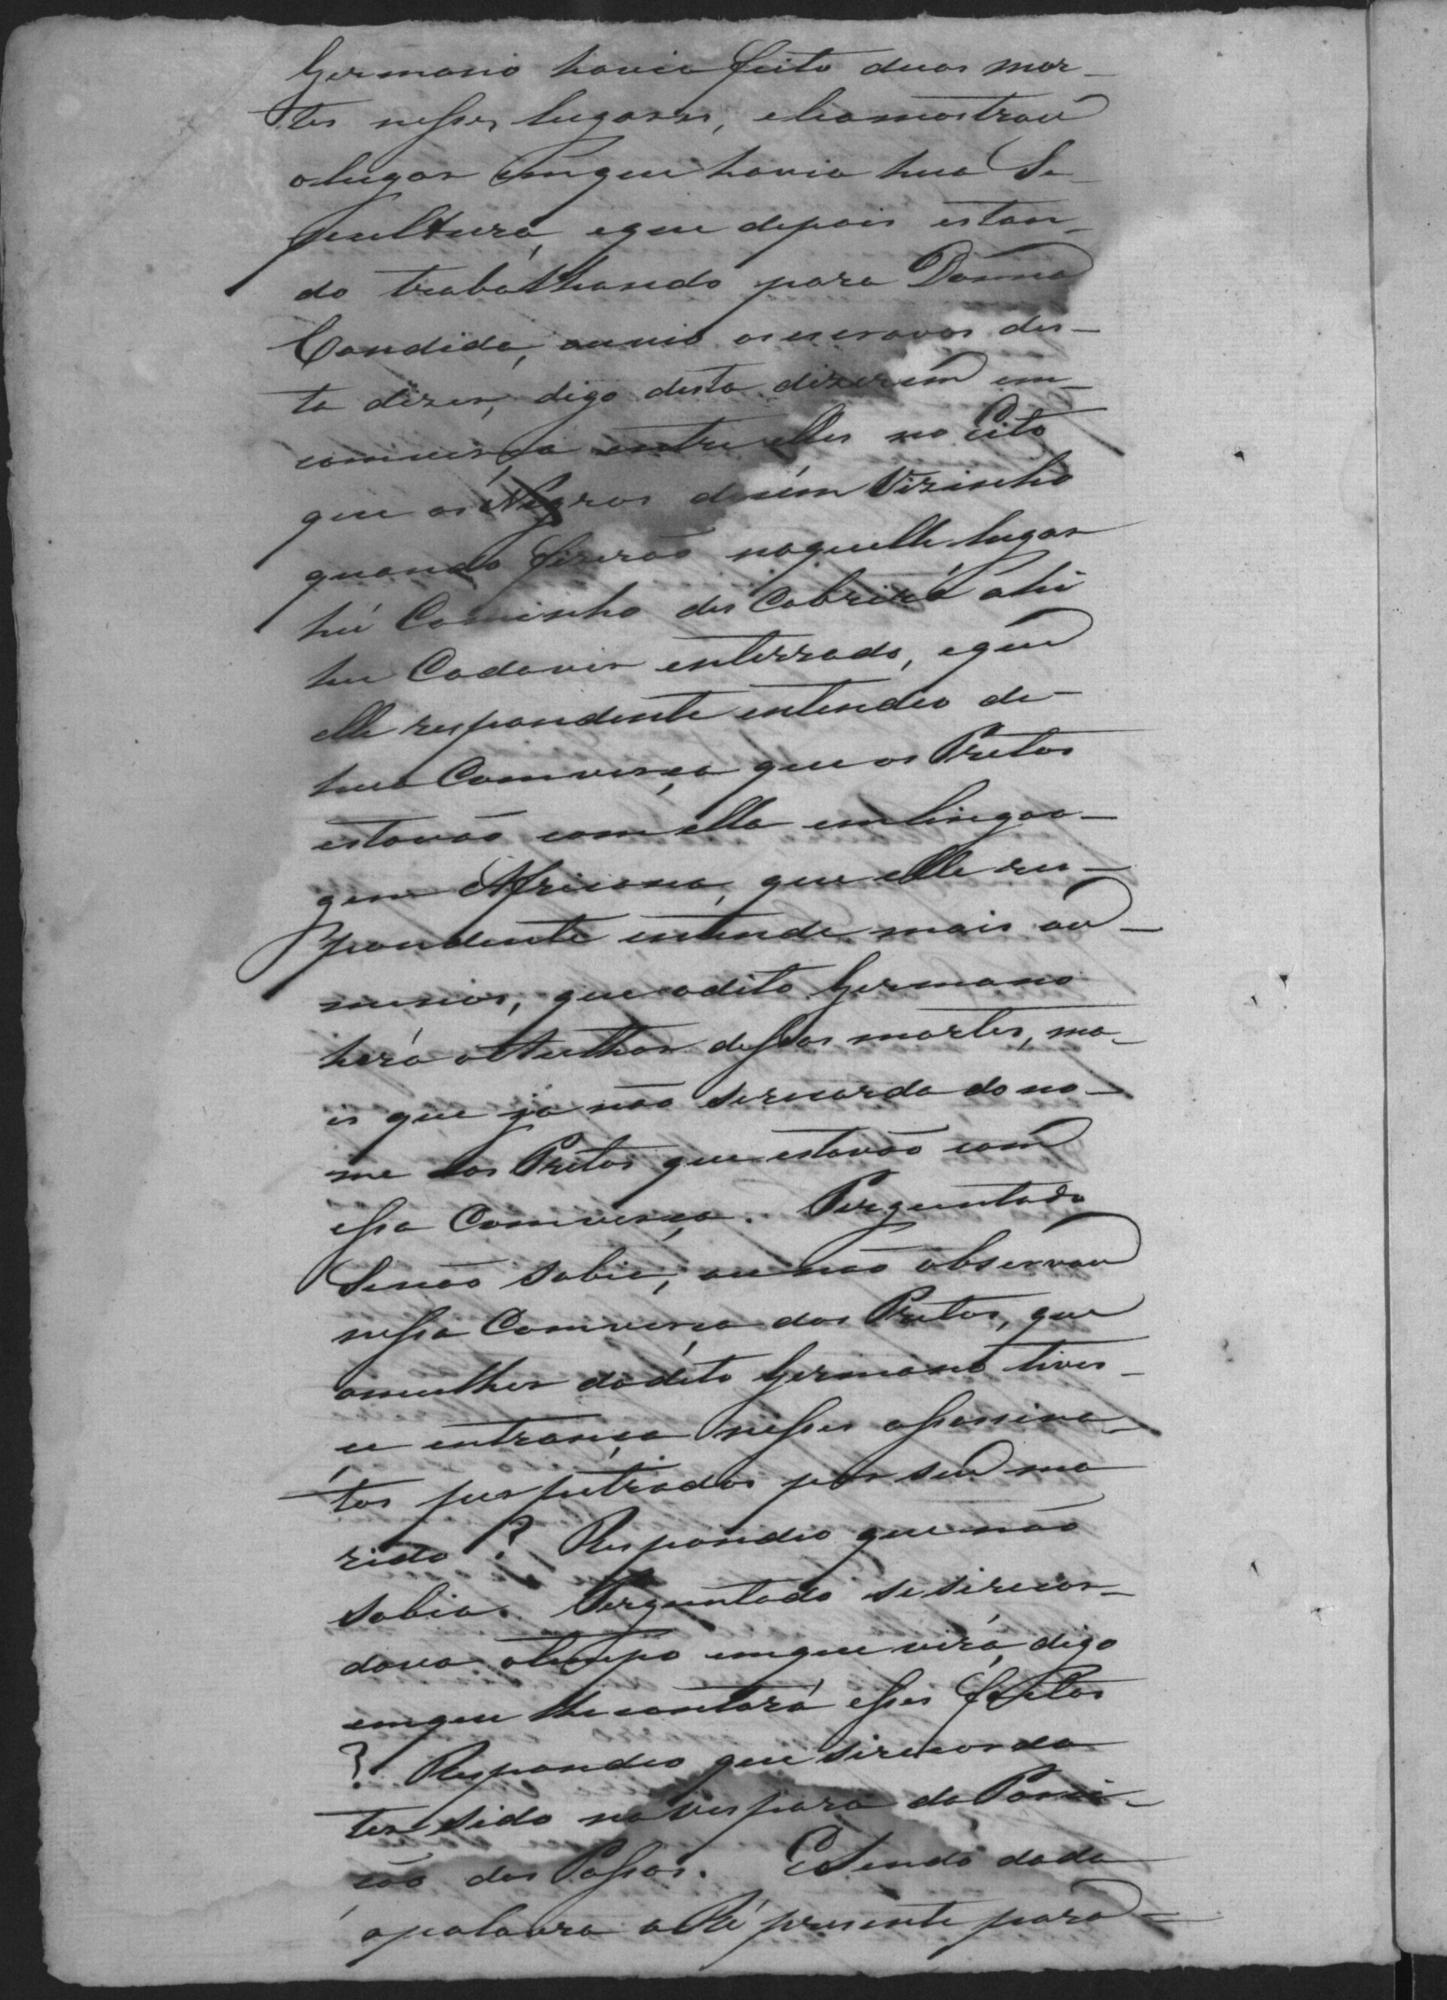 Germano havia feito duas mor-
tes nesses lugares, e lhe amostrou
o lugar em que havia hua Se-
pultura, e que depois estan-
do trabalhando para Donna
Candida, ouvio os escravos des-
ta dizer, digo desta dizerem em
comversa entre elles no Cito
que os Negros de um Vizinho
quando fizerão naquelle lugar
hú Caminho des Cobrirá ahi
hu Cadaver enterrado, e que
elle respondente entendeo de
hua Comversa, que os Pretos
estavão com ella em lingoa-
gem Africana, que elle res-
pondente entende mais ou
menos, que o dito Germano
hera o dessas mortes, ma-
is que ja não se recorda do no-
me dos Pretos que estavão com
essa Comversa. Perguntado
Se não sabia, ou não observou
nessa Comversa dos Pretos, que
a mulher do dito Germano tives-
se entrança nesses assassina-
tos perpetrados por seu ma
rido? Respondeo que não
sabia. Perguntado se se recor-
dava o tempo em que virá, digo
em que lhe contará esses feitos
? Respondeo que se recorda
ter sido na vespara da Porci-
cão dos Passos. E Sendo dada
a palavra a Ré presente para